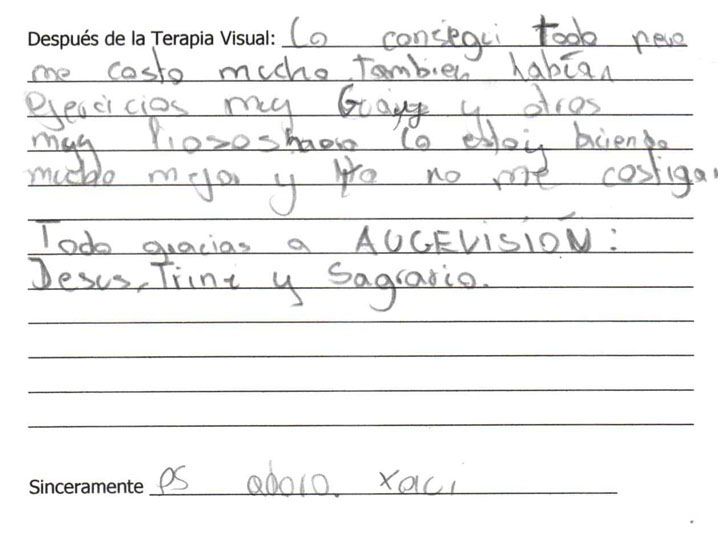 Después de la Terapia Visual: Lo conseguí todo pero
me costo mucho. Tambien habían
Ejercicios muy Guays y otros
muy liosos haora lo estoy haciendo
mucho mejor y Ha no me castigan
Todo gracias a AUGEVISIÓN:
Jesus, Trini y Sagrario.
Sinceramente os adoro. Xavi